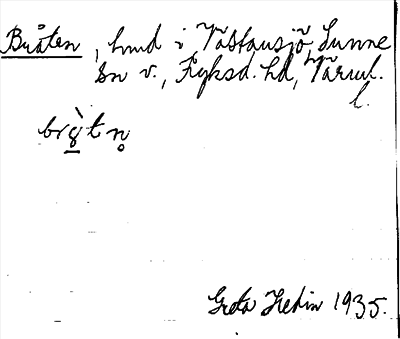 Bråten, hmd i Västansjö, Sunne
sn v., Fryksd. hd, Värml.
l.
bràtn̥
Greta Hedin 1935.